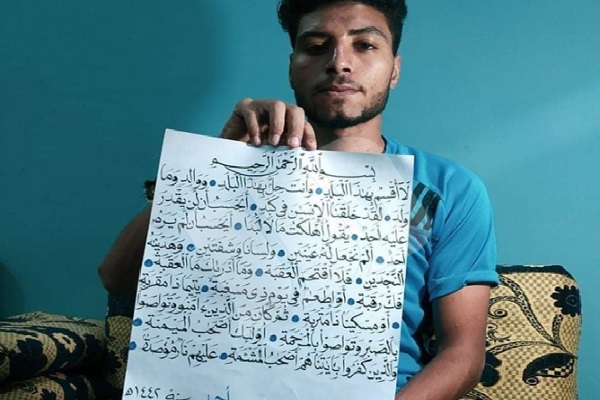 بسم الله الرحمن الرحيم
لا أقسم بهذا البلد • وأنت حل بهذا البلد • ووالد وما
ولد • لقد خلقنا الإنسن في كبد • أيحسب أن لن يقدر
عليه أحد • يقول أهلكت مالا لبدا • أيحسب أن لم يره
أحد • ألم نجعل له عينين • ولسانا وشفتين • وهدينه
النجدين • فلا اقتحم العقبة • وما أدرىك ما العقبة •
فك رقبة • أو إطعم في يوم ذي مسغبة • يتيما ذا مقربة
• أو مسكينا ذا متربة • ثم كان من الذين ءامنوا وتواصوا
بالصبر وتواصوا بالمرحمة • أولئك أصحب الميمنة •
والذين كفروا بايتنا هم أصحب المشئمة • عليهم نار مؤصدة
سنة ١٤٤٢هـ